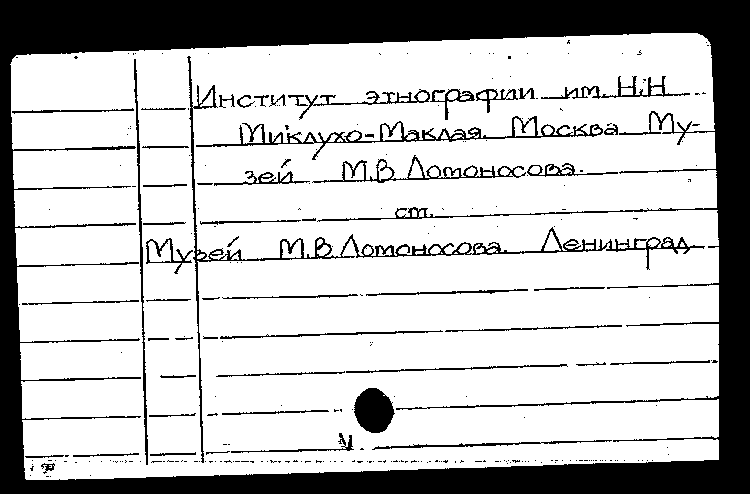 Институт этнографии им. Н.Н
Миклухо-Маклая. Москва Му-
зей М.В. Ломоносова.
ст.
Музей М.В. Ломоносова. Ленинград